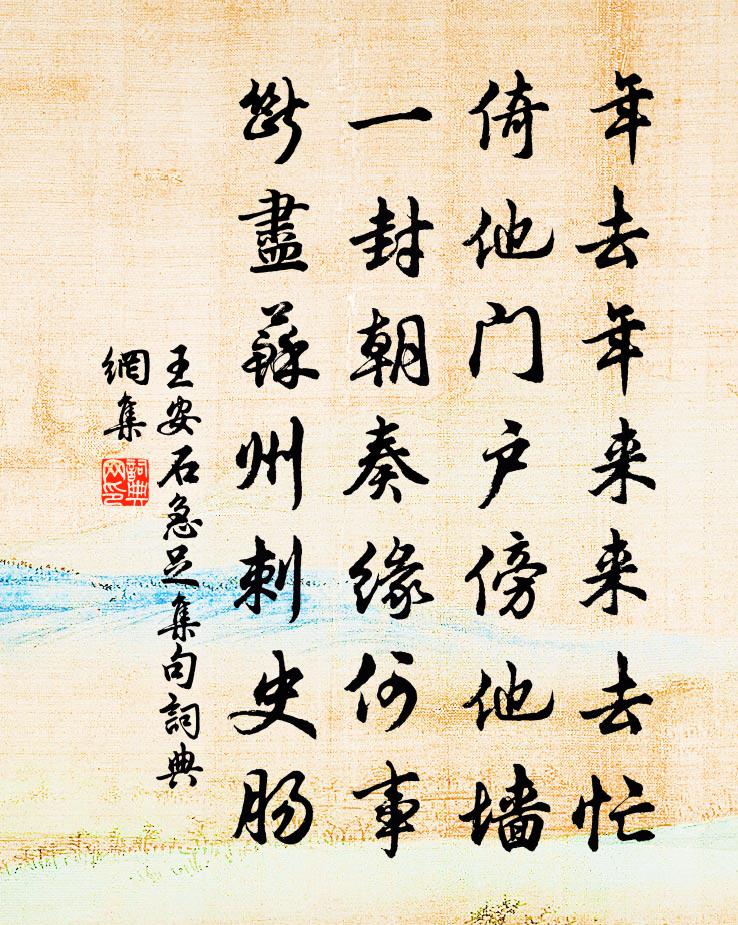 年去年来来去忙
倚他门户傍他墙
一封朝奏缘何事
断盡蘇州刺史肠
王安石急足集句詞典
網集
詞典
网印